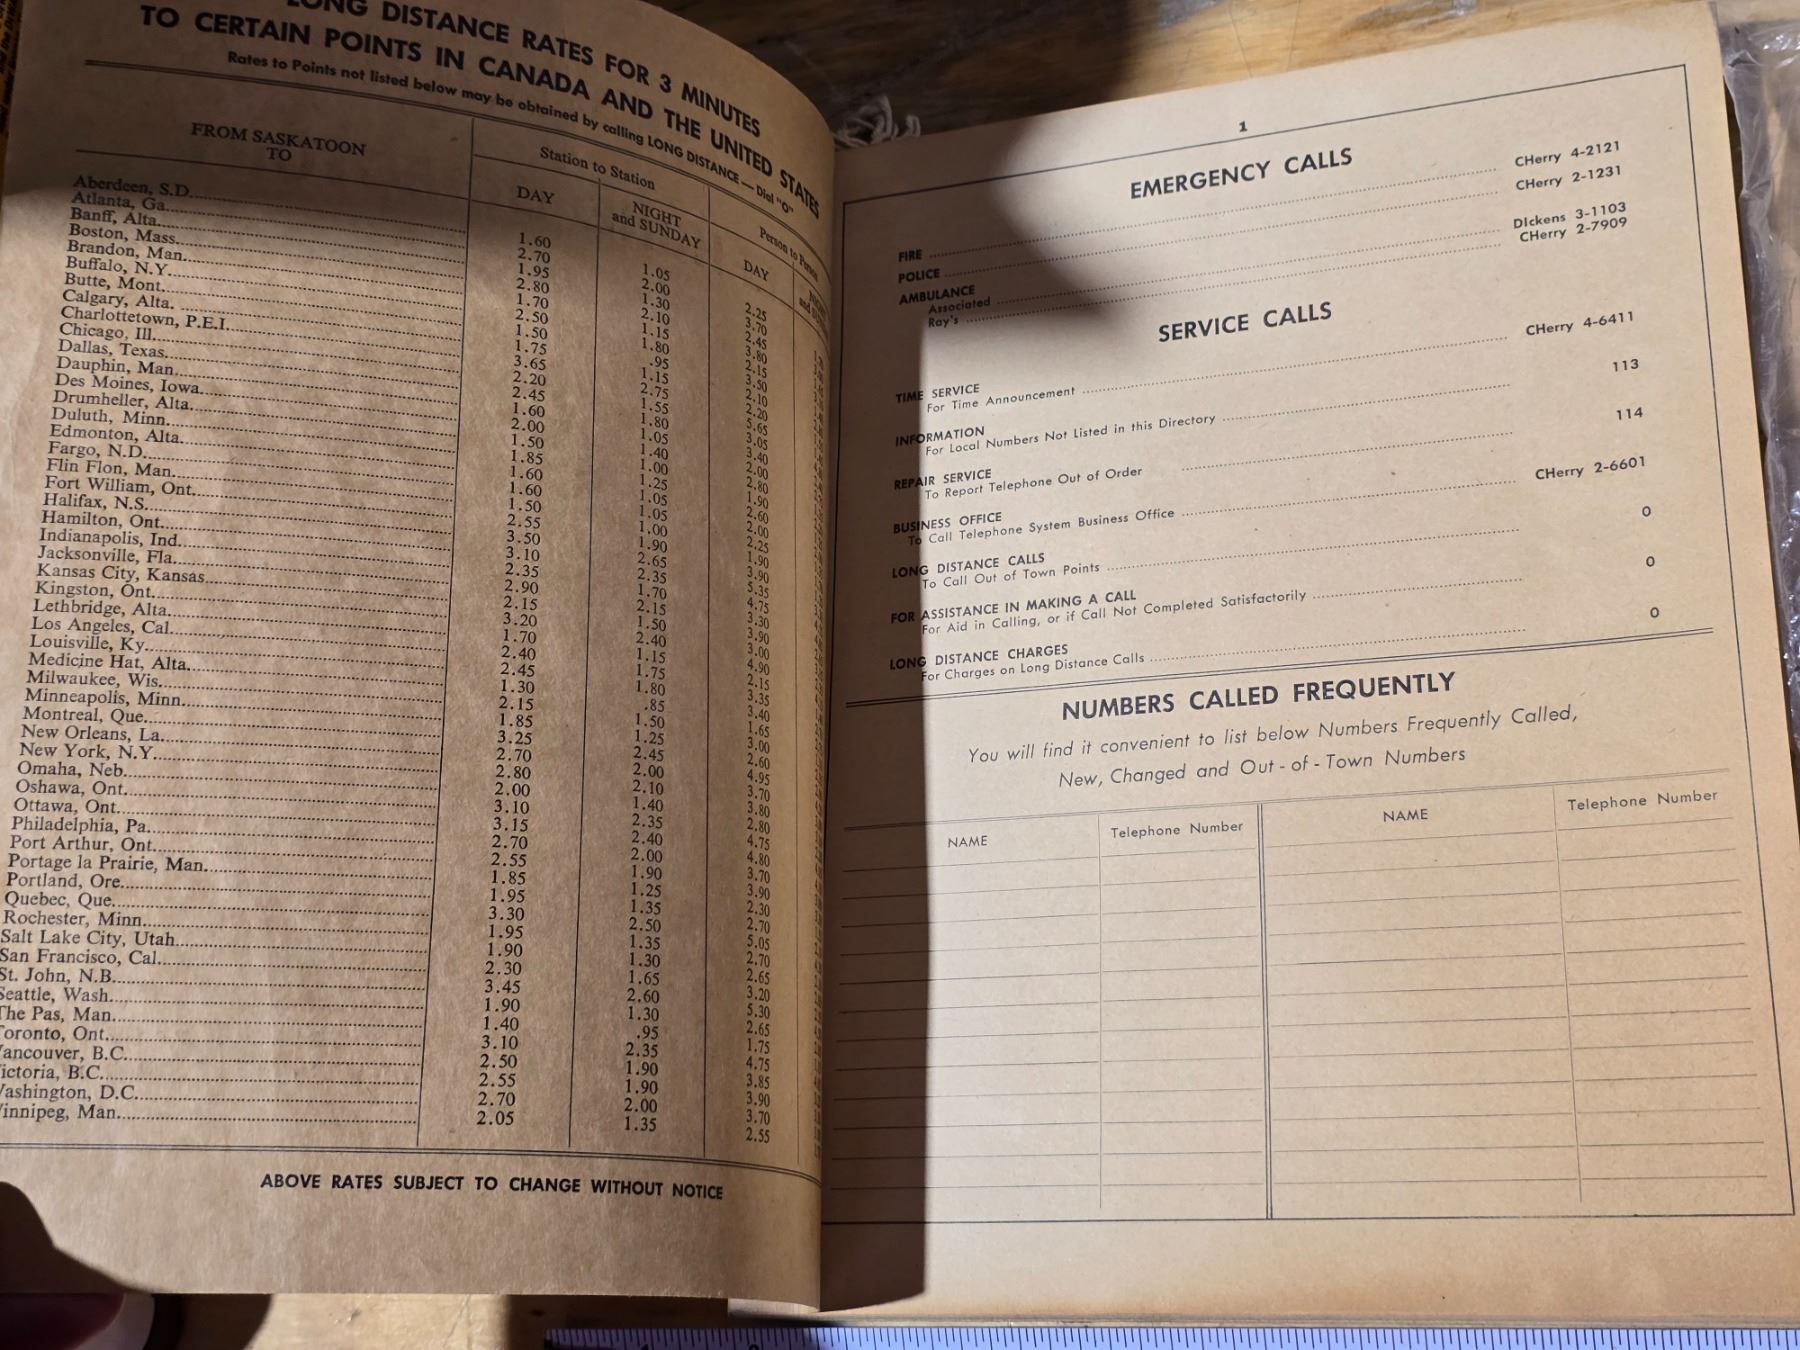 LONG DISTANCE RATES FOR 3 MINUTES
TO CERTAIN POINTS IN CANADA AND THE UNITED STATES
Rates to Points not listed below may be obtained by calling LONG DISTANCE — Dial "O"
FROM SASKATOON TO
Station to Station
Person to Person
DAY
NIGHT and SUNDAY
DAY
Aberdeen, S.D. 1.60 1.05 2.25
Atlanta, Ga. 2.70 2.00 3.70
Banff, Alta. 1.95 1.30 2.45
Boston, Mass. 2.80 2.10 3.80
Brandon, Man. 1.70 1.15 2.15
Buffalo, N.Y. 2.50 1.80 3.50
Butte, Mont. 1.50 .95 2.10
Calgary, Alta. 1.75 1.15 2.20
Charlottetown, P.E.I. 3.65 2.75 5.65
Chicago, Ill. 2.20 1.55 3.05
Dallas, Texas 2.45 1.80 3.40
Dauphin, Man. 1.60 1.05 2.00
Des Moines, Iowa 2.00 1.40 2.80
Drumheller, Alta. 1.50 1.00 1.90
Duluth, Minn. 1.85 1.25 2.60
Edmonton, Alta. 1.60 1.05 2.00
Fargo, N.D. 1.60 1.05 2.25
Flin Flon, Man. 1.50 1.00 1.90
Fort William, Ont. 2.55 1.90 3.90
Halifax, N.S. 3.50 2.65 5.35
Hamilton, Ont. 3.10 2.35 4.75
Indianapolis, Ind. 2.35 1.70 3.30
Jacksonville, Fla. 2.90 2.15 3.90
Kansas City, Kansas 2.15 1.50 3.00
Kingston, Ont. 3.20 2.40 4.90
Lethbridge, Alta. 1.70 1.15 2.15
Los Angeles, Cal. 2.40 1.75 3.35
Louisville, Ky. 2.45 1.80 3.40
Medicine Hat, Alta. 1.30 .85 1.65
Milwaukee, Wis. 2.15 1.50 3.00
Minneapolis, Minn. 1.85 1.25 2.60
Montreal, Que. 3.25 2.45 4.95
New Orleans, La. 2.70 2.00 3.70
New York, N.Y. 2.80 2.10 3.80
Omaha, Neb. 2.00 1.40 2.80
Oshawa, Ont. 3.10 2.35 4.75
Ottawa, Ont. 3.15 2.40 4.80
Philadelphia, Pa. 2.70 2.00 3.70
Port Arthur, Ont. 2.55 1.90 3.90
Portage la Prairie, Man. 1.85 1.25 2.30
Portland, Ore. 1.95 1.35 2.70
Quebec, Que. 3.30 2.50 5.05
Rochester, Minn. 1.95 1.35 2.70
Salt Lake City, Utah 1.90 1.30 2.65
San Francisco, Cal. 2.30 1.65 3.20
St. John, N.B. 3.45 2.60 5.30
Seattle, Wash. 1.90 1.30 2.65
The Pas, Man. 1.40 .95 1.75
Toronto, Ont. 3.10 2.35 4.75
Vancouver, B.C. 2.50 1.90 3.85
Victoria, B.C. 2.55 1.90 3.90
Washington, D.C. 2.70 2.00 3.70
Winnipeg, Man. 2.05 1.35 2.55
ABOVE RATES SUBJECT TO CHANGE WITHOUT NOTICE
1
EMERGENCY CALLS
FIRE CHerry 4-2121
POLICE CHerry 2-1231
AMBULANCE
Associated DIckens 3-1103
Ray's CHerry 2-7909
SERVICE CALLS
TIME SERVICE
For Time Announcement CHerry 4-6411
INFORMATION
For Local Numbers Not Listed in this Directory 113
REPAIR SERVICE
To Report Telephone Out of Order 114
BUSINESS OFFICE
To Call Telephone System Business Office CHerry 2-6601
LONG DISTANCE CALLS
To Call Out of Town Points 0
FOR ASSISTANCE IN MAKING A CALL
For Aid in Calling, or if Call Not Completed Satisfactorily 0
LONG DISTANCE CHARGES
For Charges on Long Distance Calls 0
NUMBERS CALLED FREQUENTLY
You will find it convenient to list below Numbers Frequently Called,
New, Changed and Out - of - Town Numbers
NAME Telephone Number NAME Telephone Number